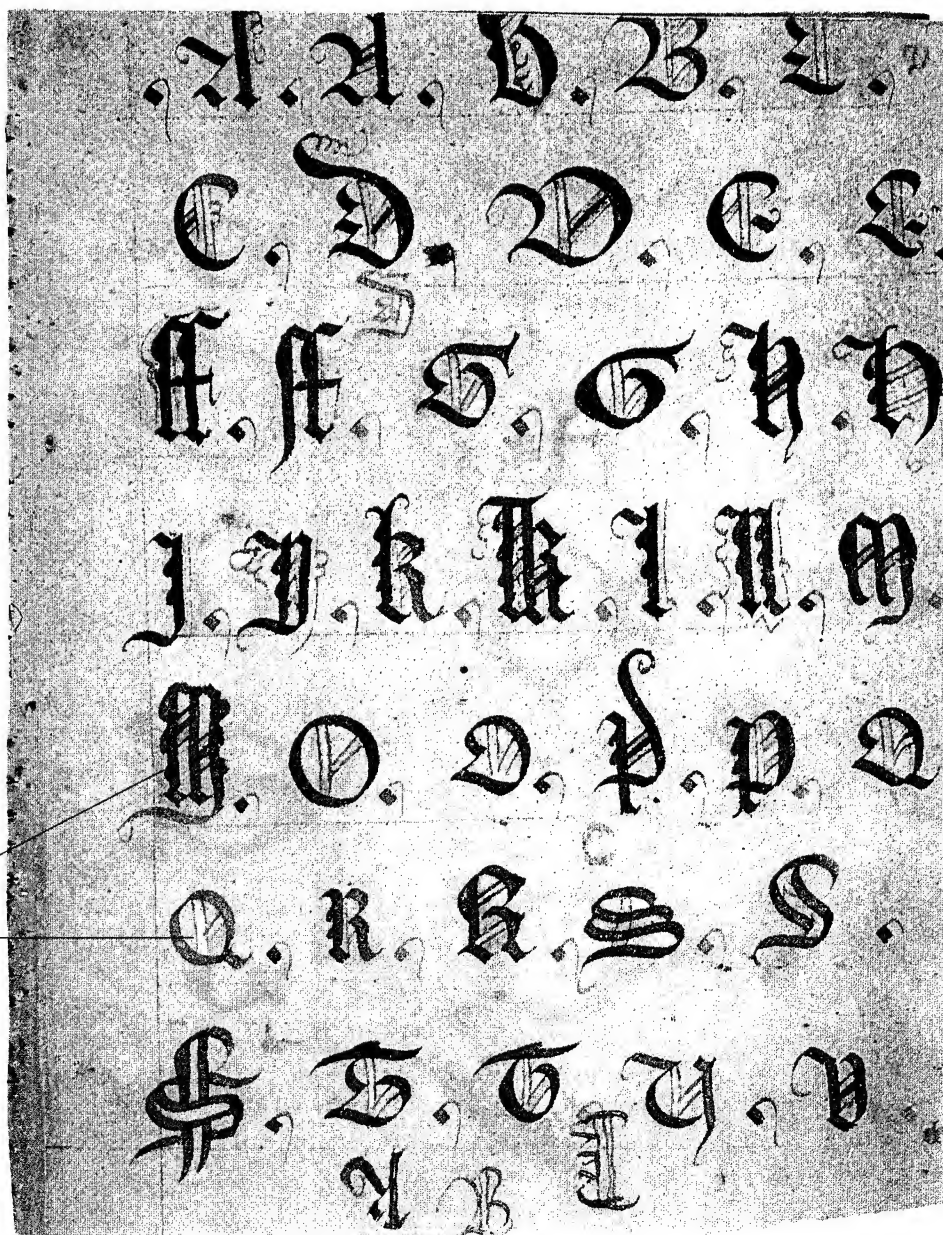 A. A. B. B. C.
C. D. D. E. E.
ff. ff. G. G. H. H
J. J. k. K. I. N. M.
M. O. O. P. P. Q
Q. R. R. S. S.
S. T. T. U. V.
A B